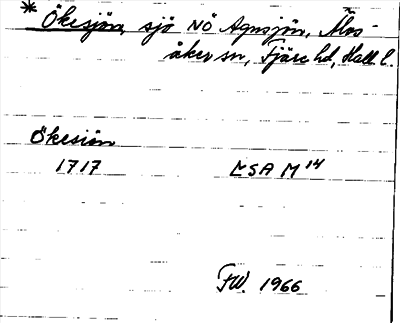 * Ökesjön, sjö NÖ Agnsjön, Älvs-
åker sn, Fjäre hd, Hall l.
Ökesiön
1717 LSA M 14
FW. 1966